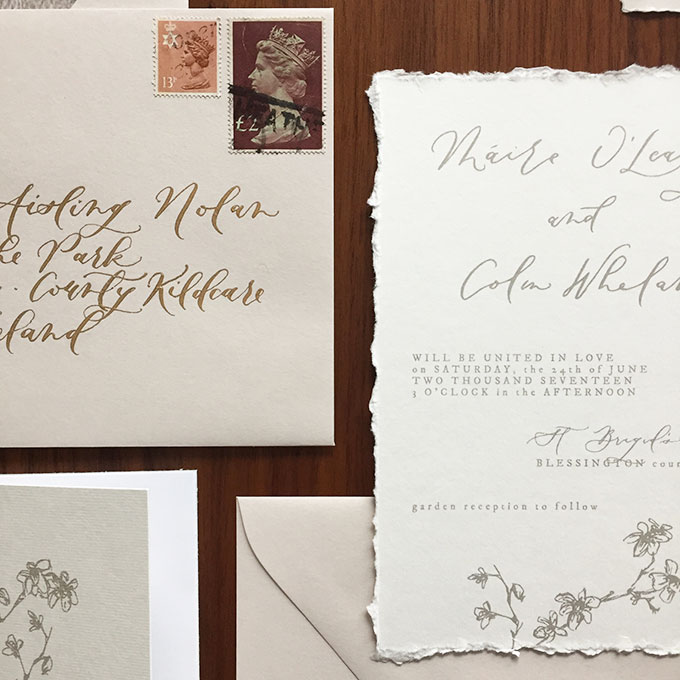 13P
£2
Aisling Nolan
he Park
County Kildare
eland
Máire O'Lea
and
Colm Whelan
WILL BE UNITED IN LOVE
on SATURDAY, the 24th of JUNE
TWO THOUSAND SEVENTEEN
3 O'CLOCK in the AFTERNOON
St Brigid's
BLESSINGTON coun
garden reception to follow